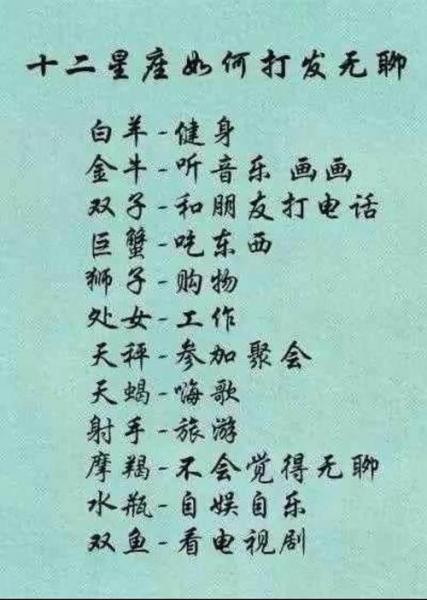 十二星座如何打发无聊
白羊-健身
金牛-听音乐 画画
双子-和朋友打电话
巨蟹-吃东西
狮子-购物
处女-工作
天秤-参加聚会
天蝎-嗨歌
射手-旅游
摩羯-不会觉得无聊
水瓶-自娱自乐
双鱼-看电视剧